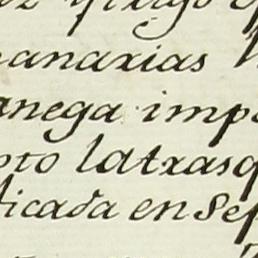 trigo
canarias
anega imp
oto latrasq
ficada en Sep